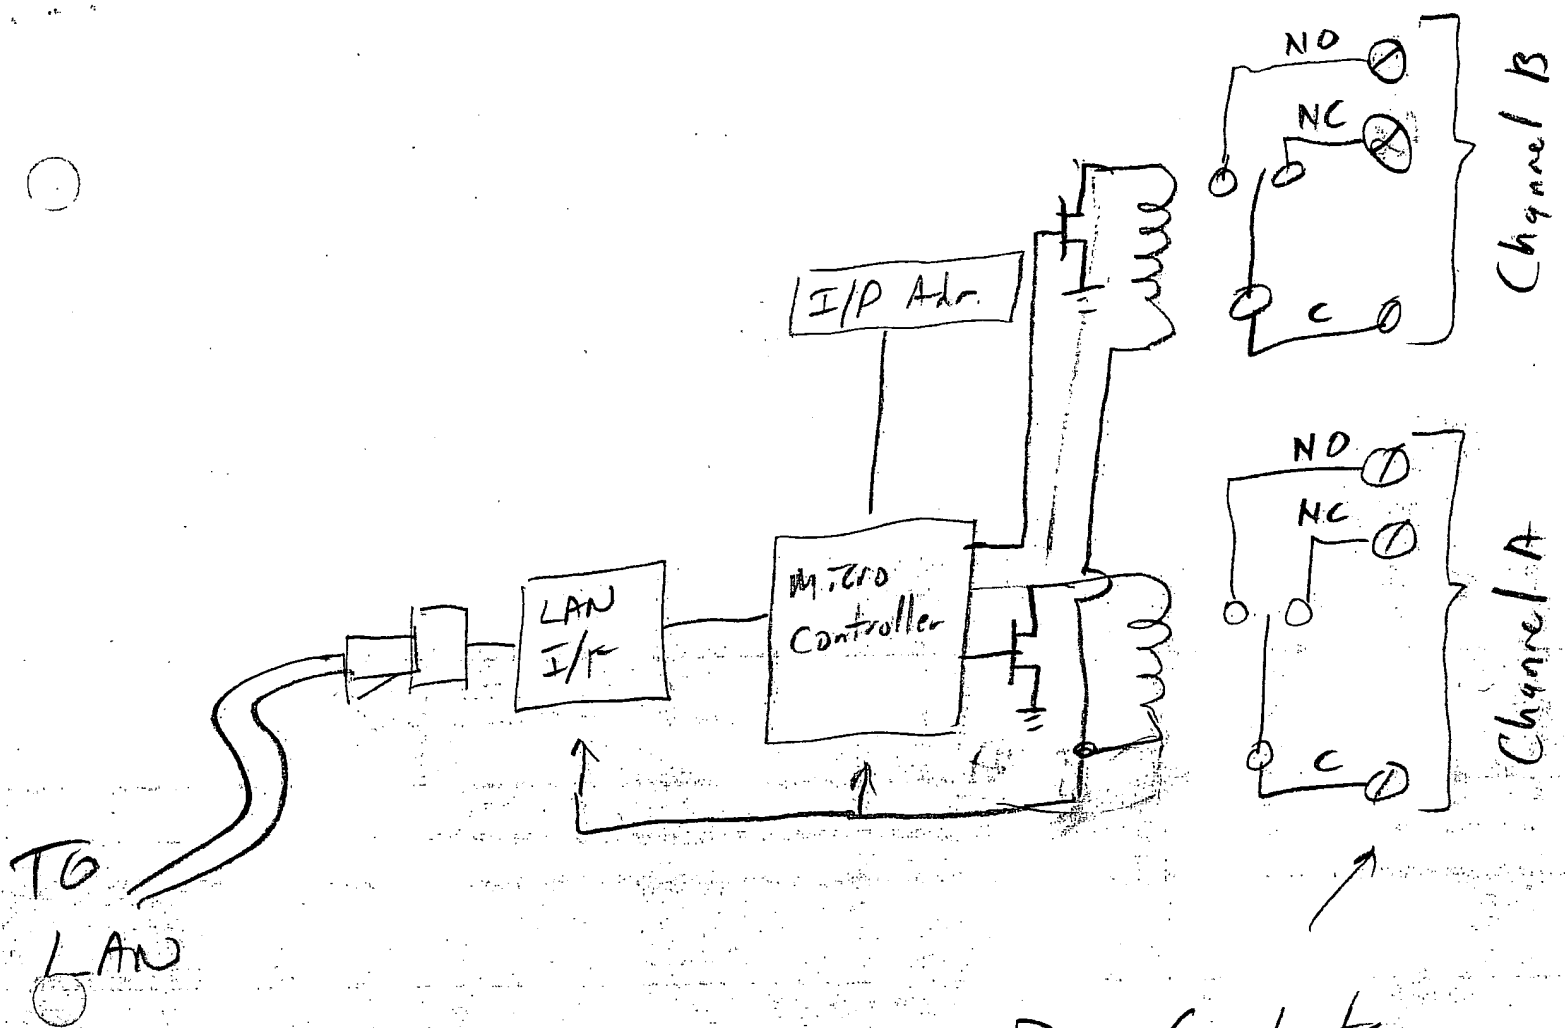 NO
NC
C
Channel B
I/P Adr.
NO
NC
C
Channel A
Micro
Controller
LAN
I/F
TO
LAN